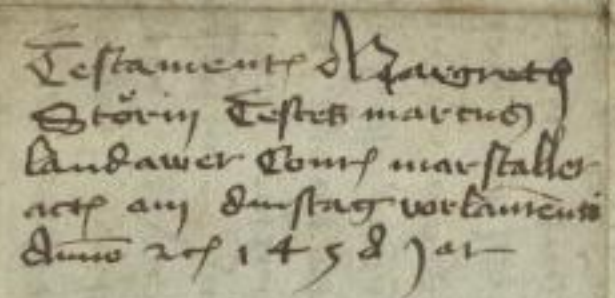 Testament Margreth
Störin Testes marcus
landawer Conr marstaller
act am dinstag vor laurenti
Anno etc 1458 jar